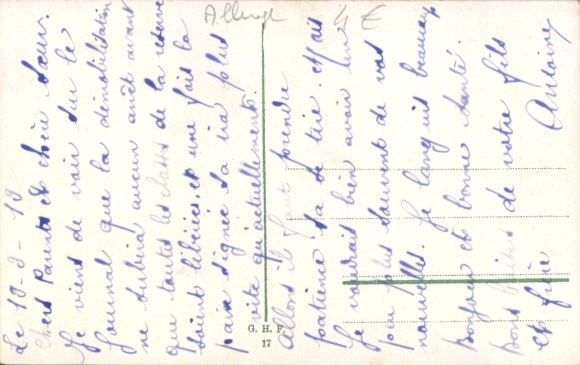 Le 10-3-19
Chers Parents et chère sœur.
Je viens de voir sur le
journal que la démobilitation
ne subira aucun arrêt avant
que toutes les classes de la réserve
soient libérées, et une fois la
paix signée sa ira plus
vite qu'actuellement.
Alons il faut prendre
patience sa se tire. Mais
Je voudrais bien avoir un
peu plus souvent de vos
nouvelles. Je languis beaucoup
Bonjour et bonne santé.
Bons baisers de votre fils
et frère Antoine
Allemagne
4 €
G. H. F.
17